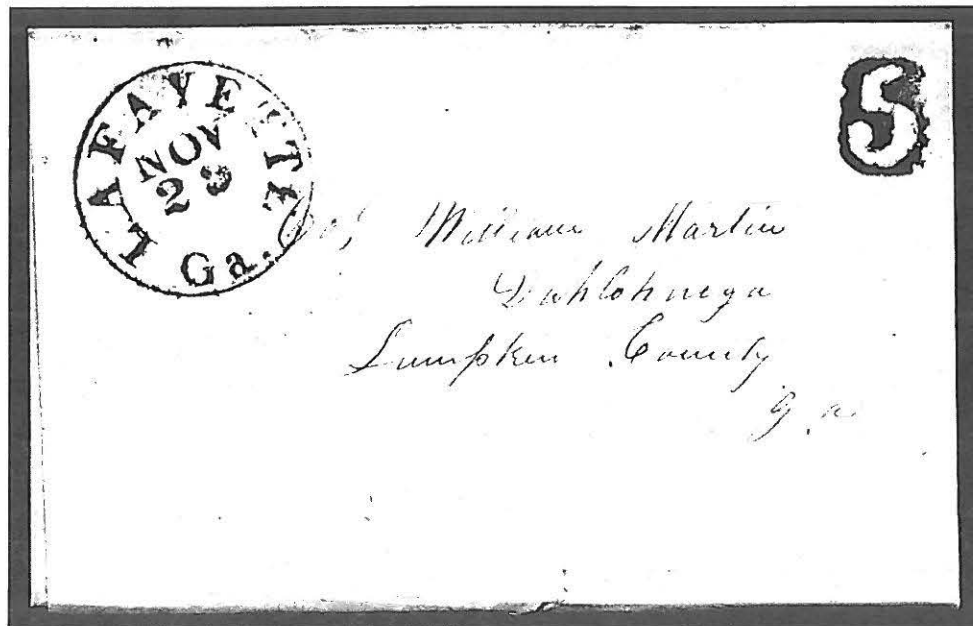 LAFAYETTE
NOV
23
Ga.
5
Col William Martin
Dahlohnega
Lumpken County
Ga